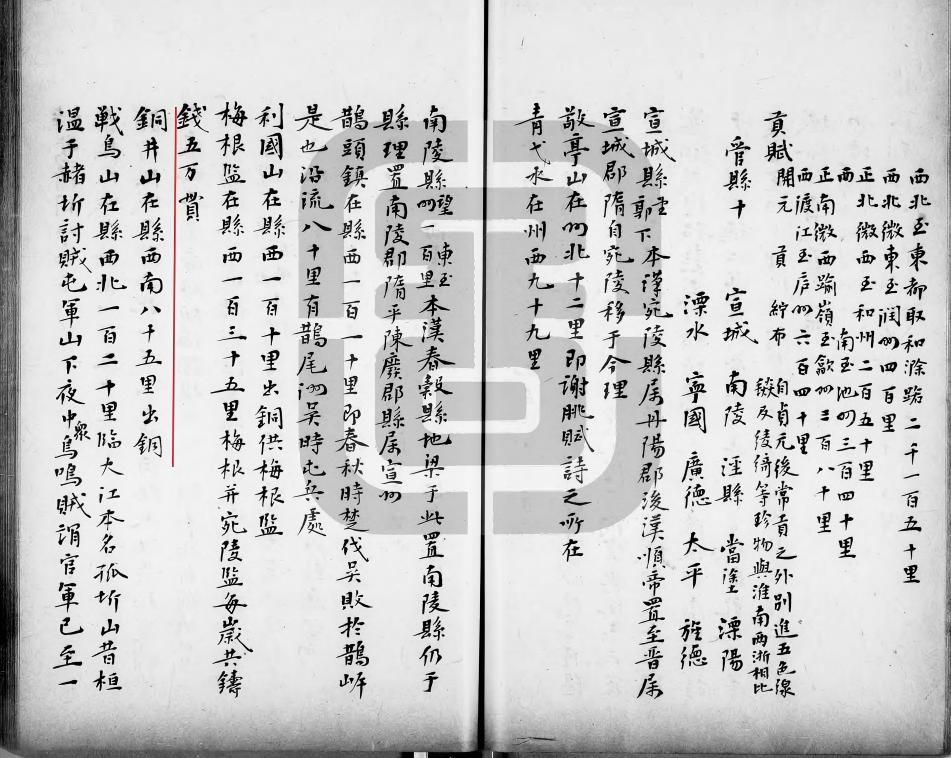 西北至東都取和滁路二千一百五十里
西北微東至潤州四百里
正北微西至和州二百五十里
西南至池州三百四十里
正南微西踰嶺至歙州三百八十里
西渡江至庐州六百四十里
貢賦 開元貢 紵布 自貞元後常貢之外別進五色線
毯及綾綺等珍物與淮南兩浙相比
管縣十 宣城 南陵 涇縣 當塗 溧陽
溧水 寧國 廣德 太平 旌德
宣城縣望郭下本漢宛陵縣属丹陽郡後漢順帝置至晉属
宣城郡隋自宛陵移于今理
敬亭山在州北十二里即謝朓賦詩之所在
青弋水在州西九十九里
南陵縣望東至州一百里本漢春穀縣地梁于此置南陵縣仍于
縣理置南陵郡隋平陳廢郡縣属宣州
鵲頭鎮在縣西一百一十里即春秋時楚伐吳敗於鵲岸
是也沿流八十里有鵲尾洲吳時屯兵處
利國山在縣西一百十里出銅供梅根監
梅根監在縣西一百三十五里梅根并宛陵監每歲共鑄
錢五万貫
銅井山在縣西南八十五里出銅
戰鳥山在縣西北一百二十里臨大江本名孤圻山昔桓
温于赭圻討賊屯軍山下夜中眾鳥鳴賊謂官軍已至一